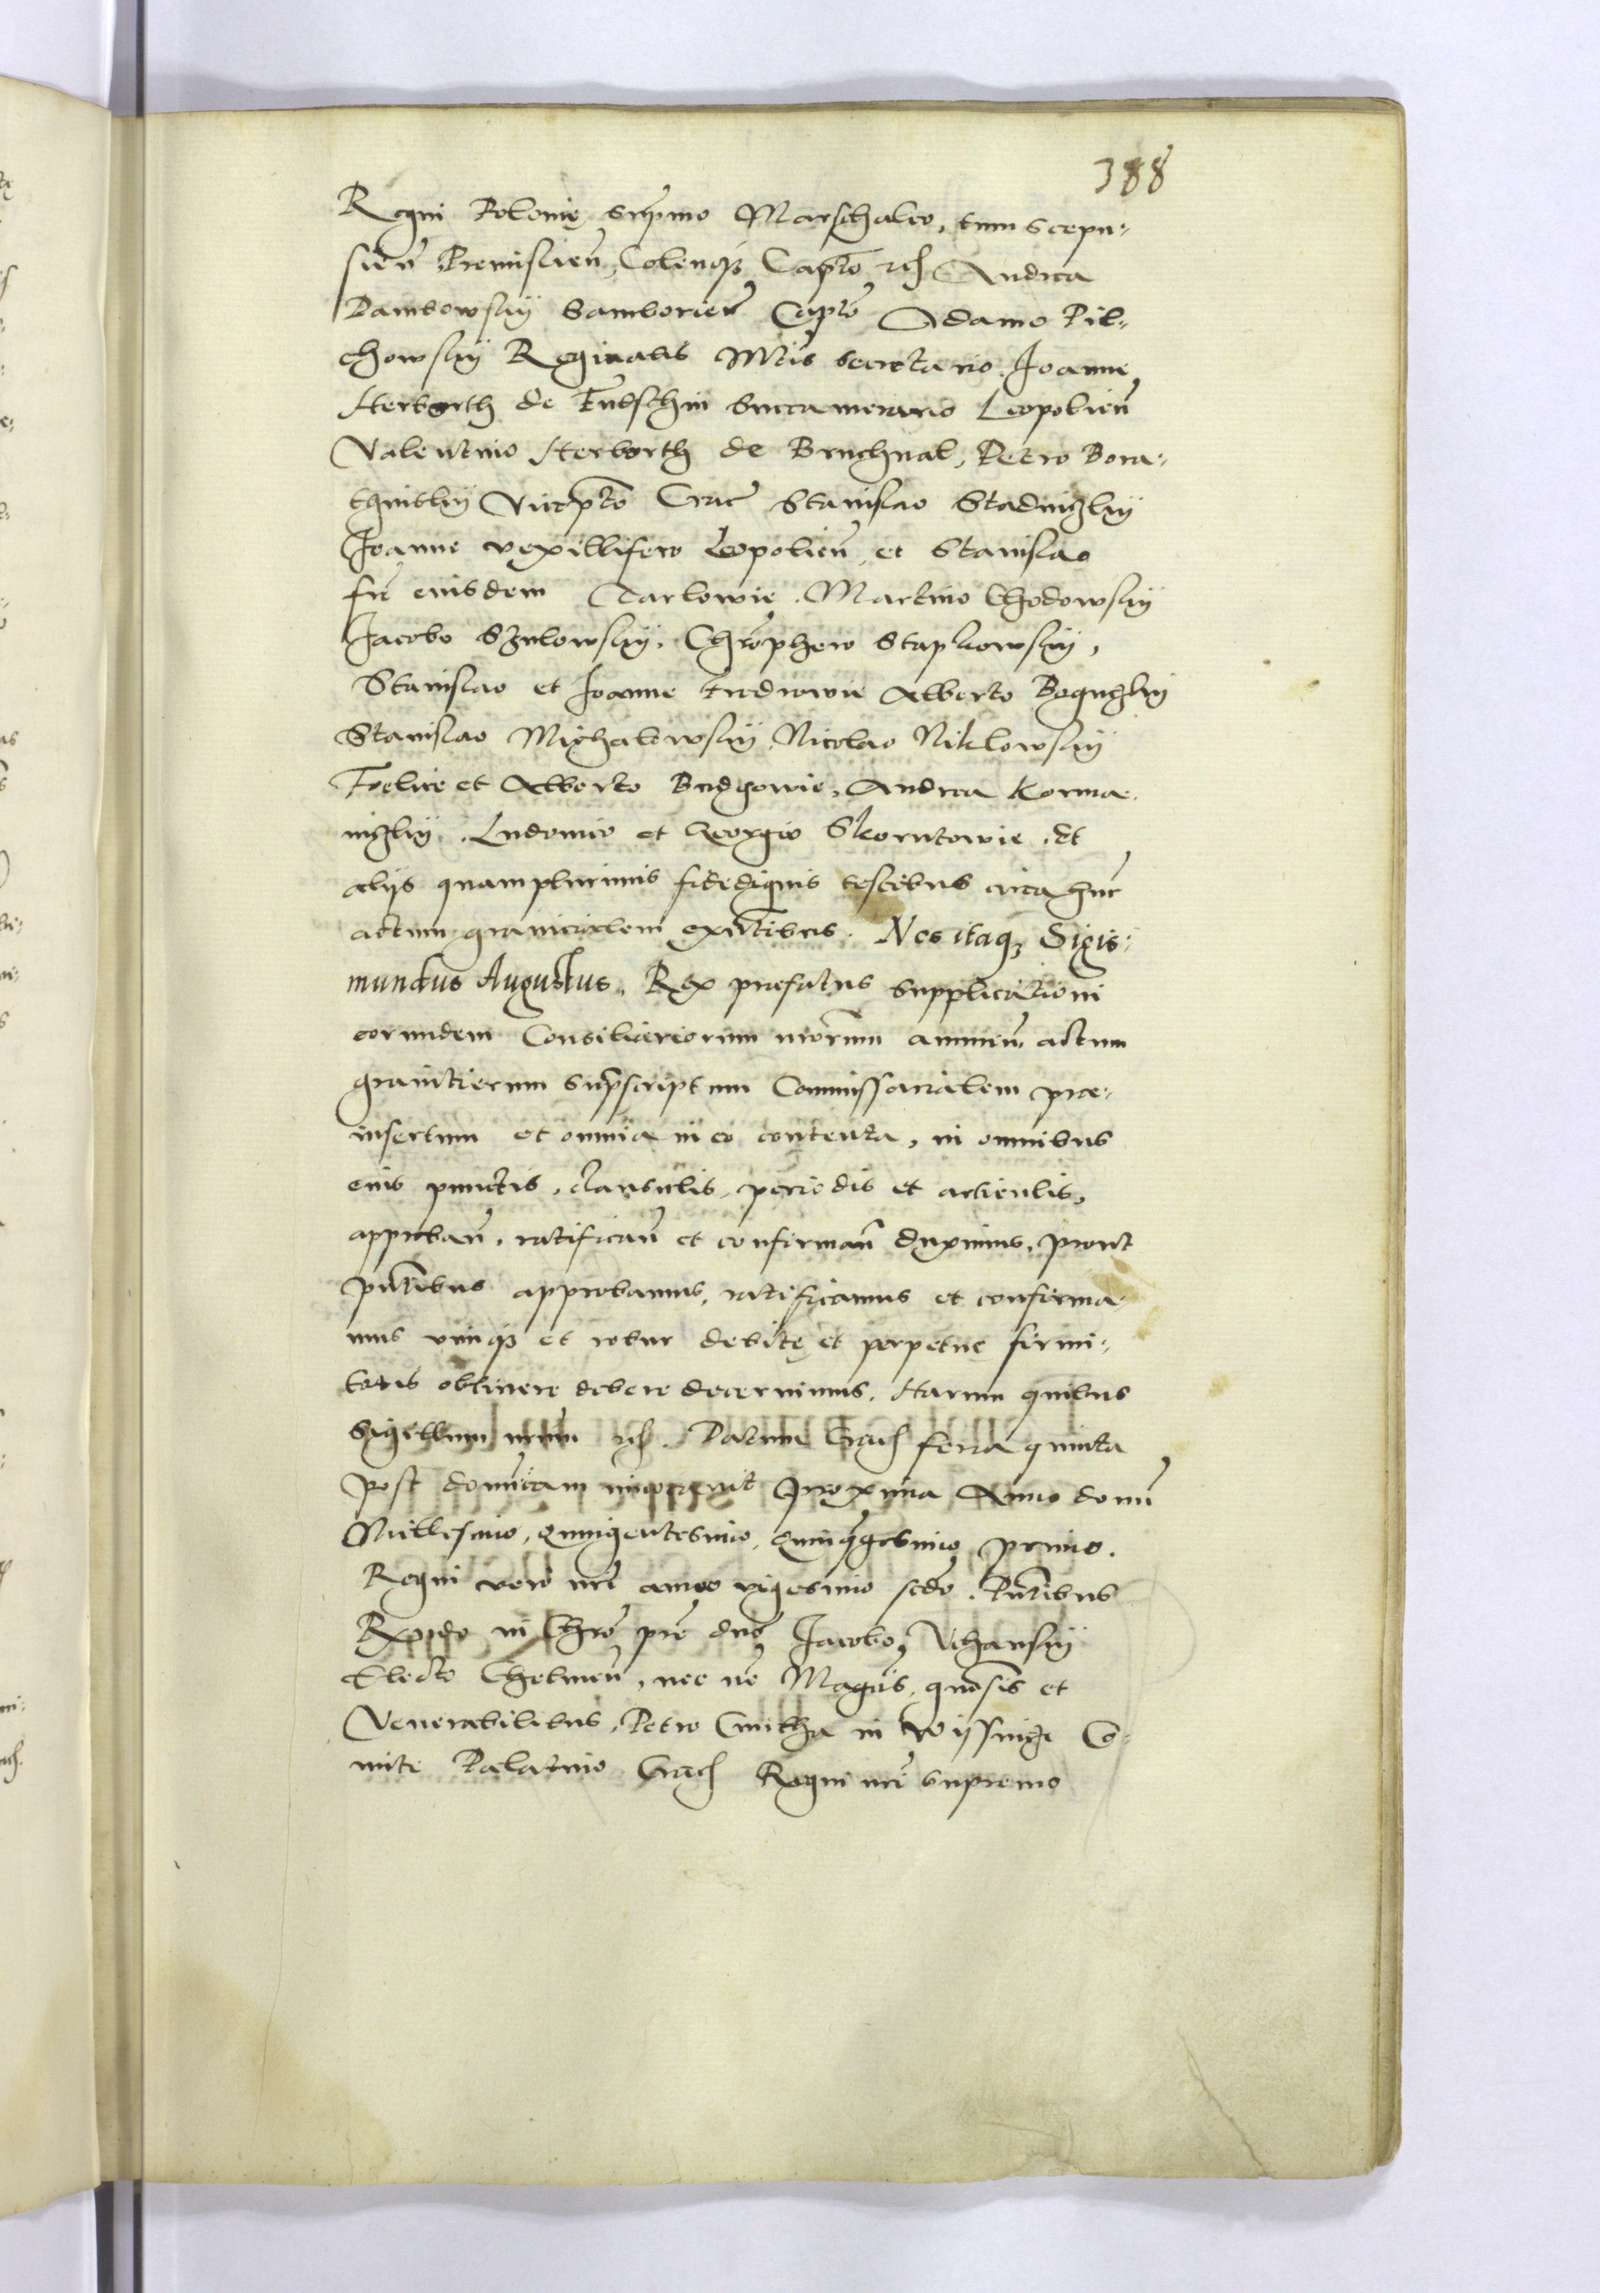 388
Regni Polonię supmo Marschalco, tum Scepu-
sien̄ Premislien̄, Colenq3 Capto etc Andrea
Dambowskÿ Samborien̄ Capto Adamo Pil-
chowskÿ Reginalis Mtis Secretario. Joanne
Herborth de Fulschin Succamerario Leopolien̄
Valentino Herborth de Bruchnal, Petro Bora-
thÿnskÿ Vicepto Crac̄ Stanislao Stadniczkÿ
Joanne vexillifero Leopolien̄, et Stanislao
fre eiusdem Tarlowie. Martino Chodowskÿ
Jacobo Szulowskÿ. Chrophero Stapkowskÿ,
Stanislao et Joanne Fredrowie Alberto Boguczkÿ
Stanislao Michalowskÿ, Nicolao Niklowskÿ
Foelice et Alberto Budzowie, Andrea Korma-
niczkÿ. Ludovico et Georgio Skorutowie. Et
alijs quamplurimis fidedignis testibus circa hunc
actum granicialem exntibus. Nos itaq3 Sigis-
mundus Augustus. Rex praefatus supplicationi
eorundem Consiliariorum nrorum annuen̄. actum
granicierum supscriptum Commissorialem prae-
insertum et omnia in eo contenta, in omnibus
eius punctis, clausulis, periodis et articulis,
approban̄, ratifican̄ et confirman̄ duximus, prout
pntibus approbamus, ratificamus et confirma-
mus vimq3 et robur debitę et perpetue firmi-
tatis obtinere debere decernimus. Harum quibus
Sigillum nrum etc. Datum Crac feria quinta
post domicam invocavit proxima Anno domi
Millesimo, Quingentesimo, Quinqgesimo primo.
Regni vero nri anno vigesimo scdo. Pntibus
Rxndo in Chro pre dno Jacobo, Uchanskÿ
Electo Chelmen̄, nec no Magcis, gnosis et
Venerabilibus, Petro Cmitha in Wijssnicze Co-
mite Palatino Crac Regni nri supremo